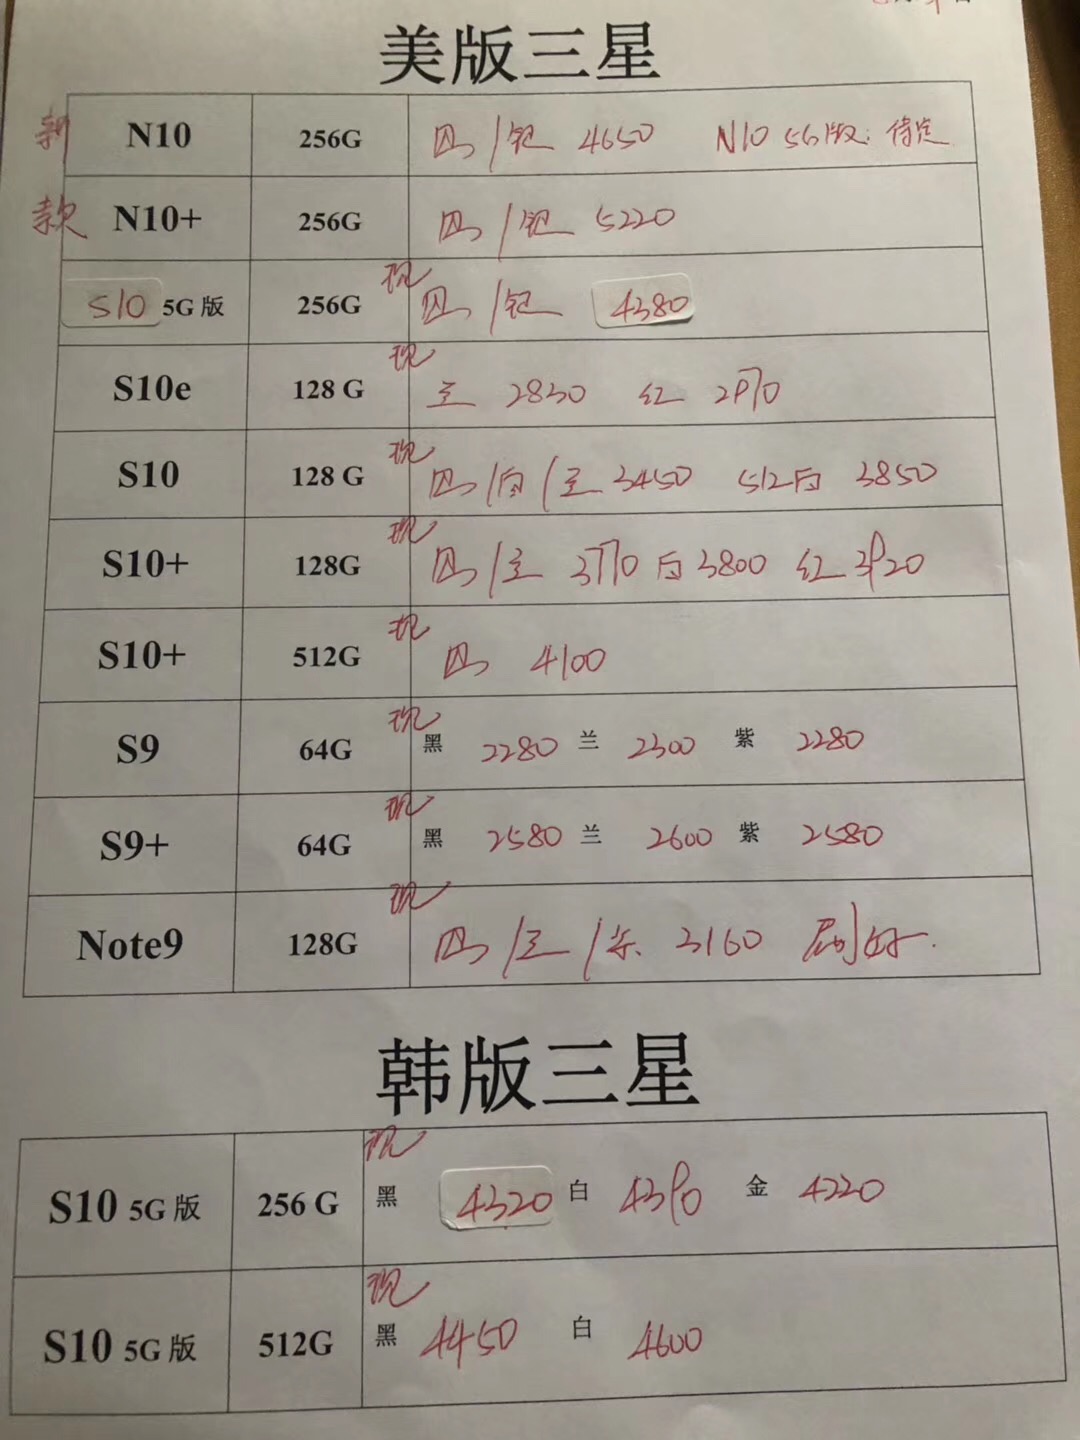 美版三星
新 N10 256G 黑/银 4650 N10 5G版:待定
款 N10+ 256G 黑/银 5220
S10 5G版 256G 现 黑/银 4380
S10e 128 G 现 兰 2830 红 2970
S10 128 G 现 黑/白/兰 3450 512白 3850
S10+ 128G 现 黑/兰 3770 白3800 红 3920
S10+ 512G 现 黑 4100
S9 64G 现 黑 2280 兰 2300 紫 2280
S9+ 64G 现 黑 2580 兰 2600 紫 2580
Note9 128G 现 黑/兰/紫 3160 刷好.
韩版三星
S10 5G版 256 G 现 黑 4320 白 4390 金 4220
S10 5G版 512G 现 黑 4450 白 4600